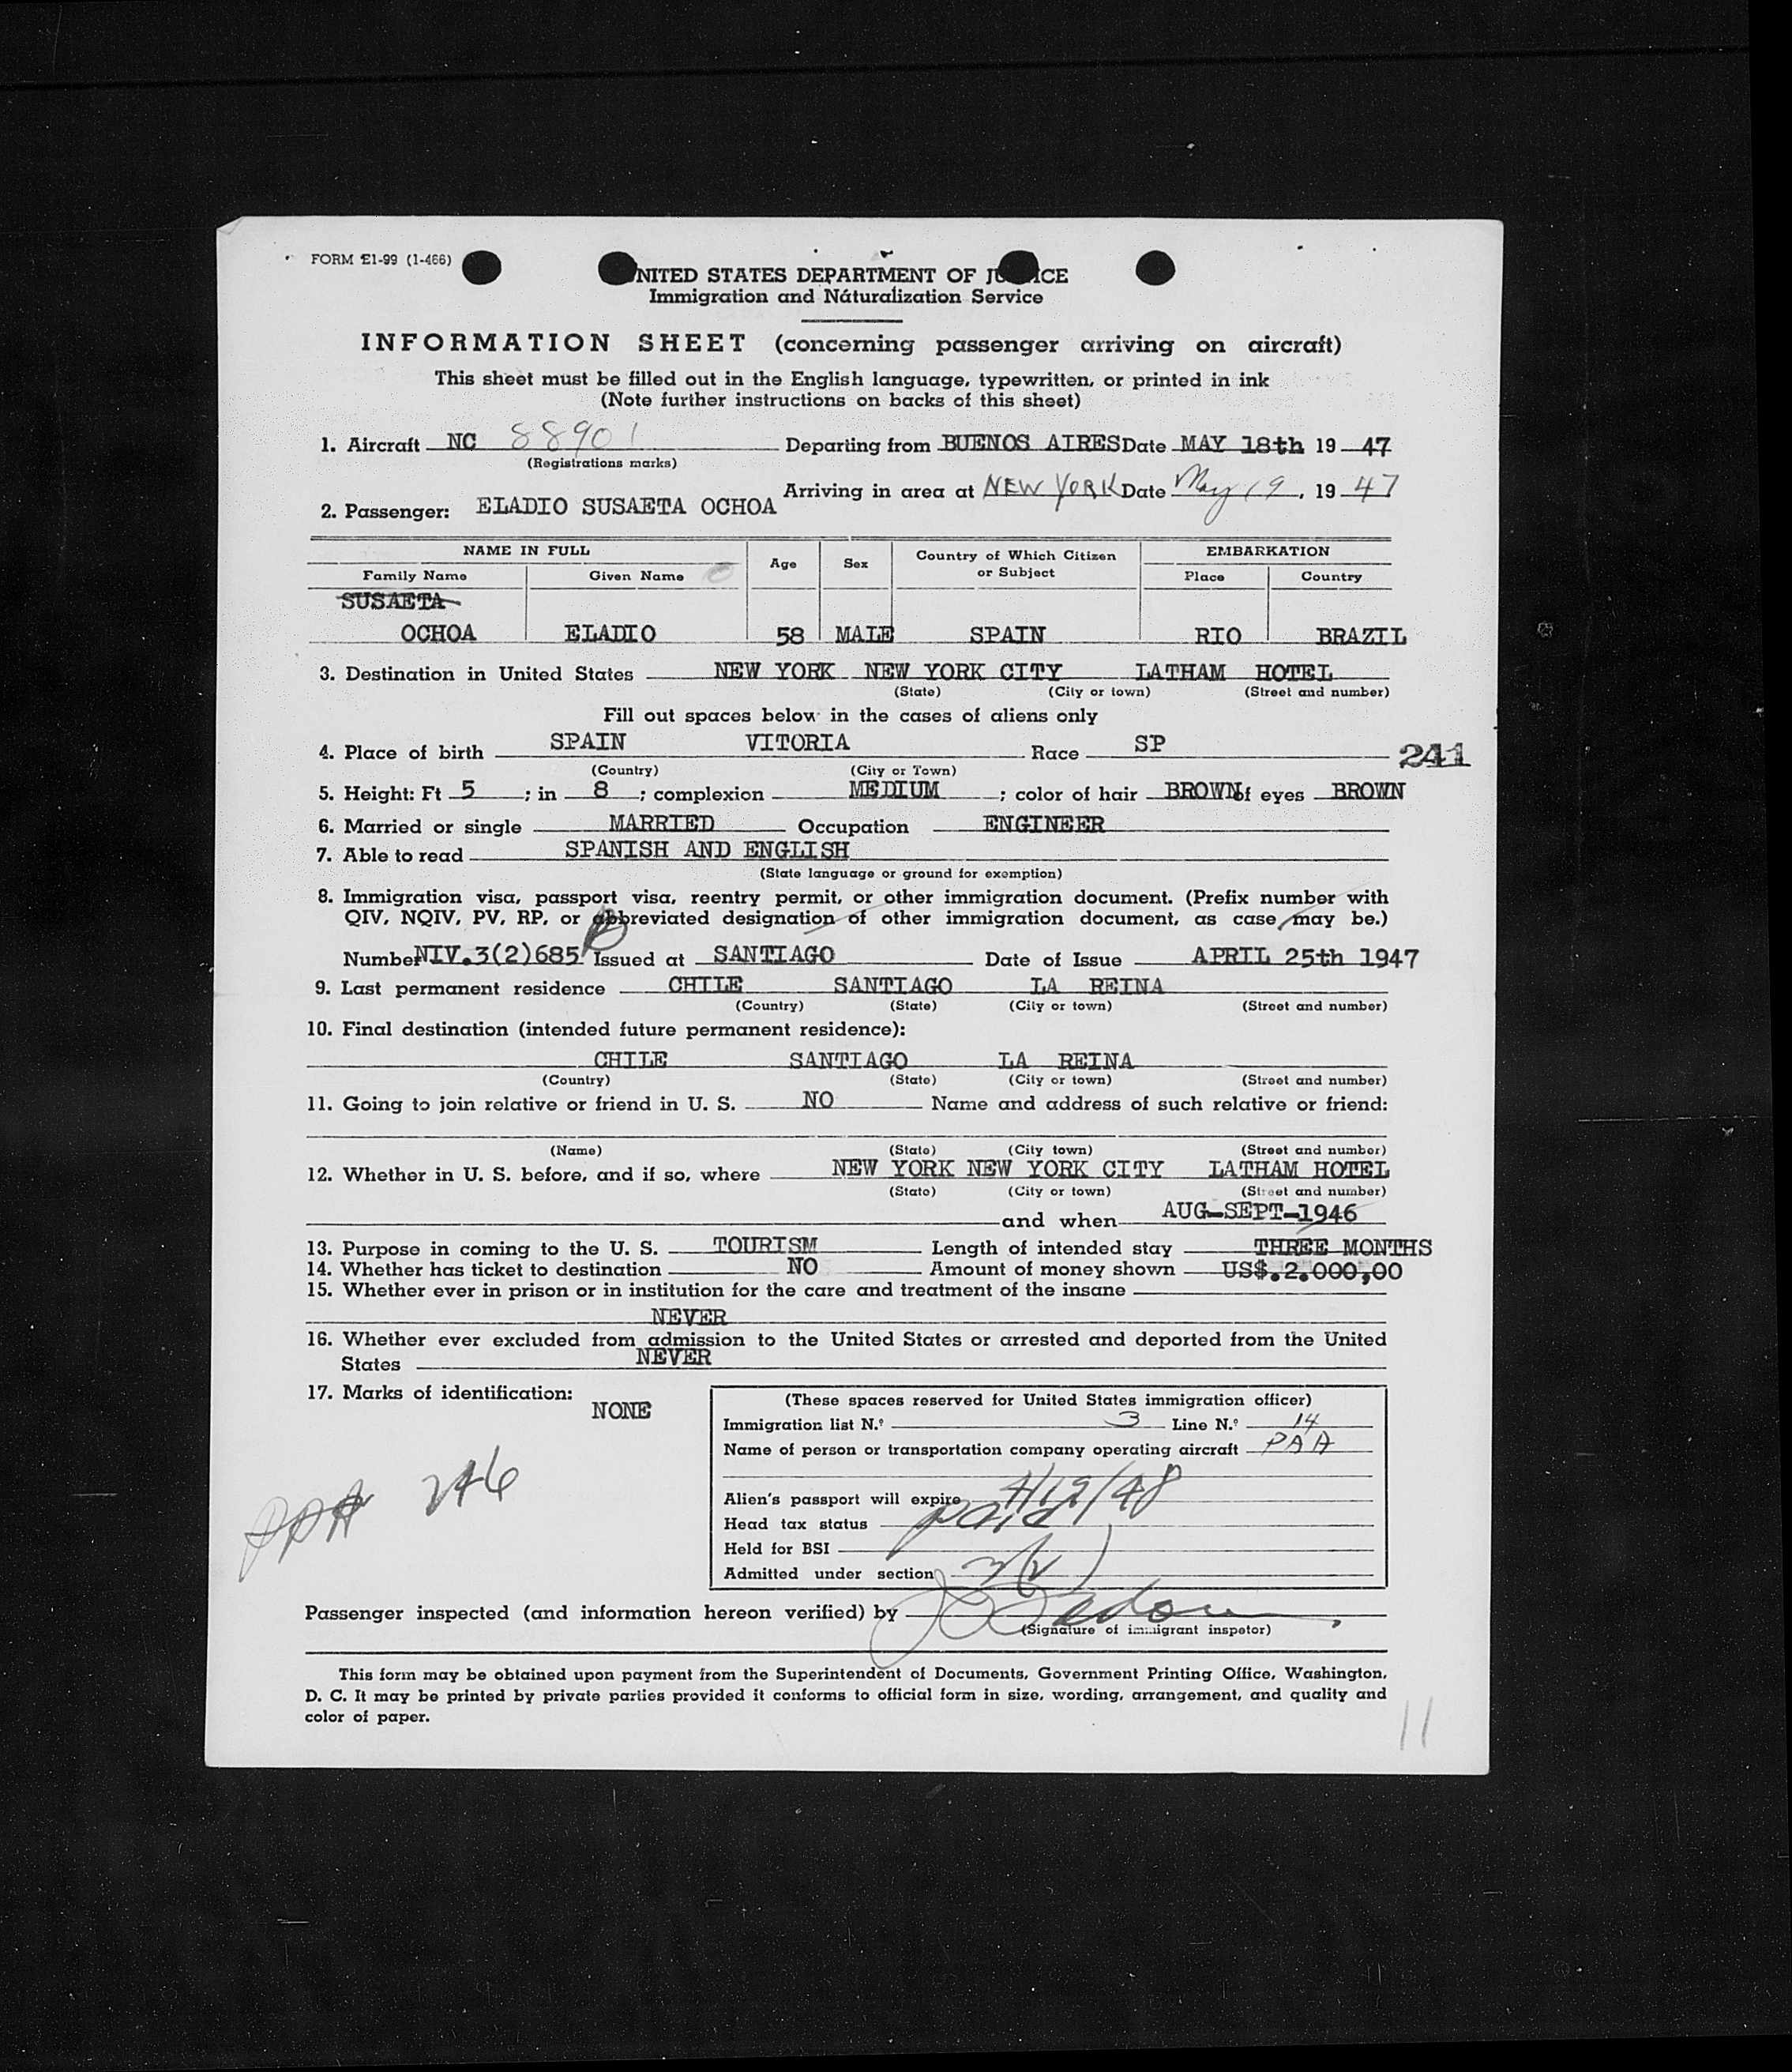 FORM E1-99 (1-466)
NITED STATES DEPARTMENT OF JU ICE
Immigration and Náturalization Service
INFORMATION SHEET (concerning passenger arriving on aircraft)
This sheet must be filled out in the English language, typewritten, or printed in ink
(Note further instructions on backs of this sheet)
1. Aircraft NC 88901 Departing from BUENOS AIRES Date MAY 18th 19 47
(Registrations marks)
Arriving in area at NEW YORK Date May 19, 19 47
2. Passenger: ELADIO SUSAETA OCHOA
NAME IN FULL Age Sex Country of Which Citizen or Subject EMBARKATION
Family Name Given Name Place Country
SUSAETA
OCHOA ELADIO 58 MALE SPAIN RIO BRAZIL
3. Destination in United States NEW YORK NEW YORK CITY LATHAM HOTEL
(State) (City or town) (Street and number)
Fill out spaces below in the cases of aliens only
4. Place of birth SPAIN VITORIA Race SP 241
(Country) (City or Town)
5. Height: Ft 5 ; in 8 ; complexion MEDIUM ; color of hair BROWN of eyes BROWN
6. Married or single MARRIED Occupation ENGINEER
7. Able to read SPANISH AND ENGLISH
(State language or ground for exemption)
8. Immigration visa, passport visa, reentry permit, or other immigration document. (Prefix number with
QIV, NQIV, PV, RP, or abbreviated designation of other immigration document, as case may be.)
Number NIV.3(2)685 Issued at SANTIAGO Date of Issue APRIL 25th 1947
9. Last permanent residence CHILE SANTIAGO LA REINA
(Country) (State) (City or town) (Street and number)
10. Final destination (intended future permanent residence):
CHILE SANTIAGO LA REINA
(Country) (State) (City or town) (Street and number)
11. Going to join relative or friend in U. S. NO Name and address of such relative or friend:
(Name) (State) (City town) (Street and number)
12. Whether in U. S. before, and if so, where NEW YORK NEW YORK CITY LATHAM HOTEL
(State) (City or town) (Street and number)
and when AUG-SEPT-1946
13. Purpose in coming to the U. S. TOURISM Length of intended stay THREE MONTHS
14. Whether has ticket to destination NO Amount of money shown US$.2.000,00
15. Whether ever in prison or in institution for the care and treatment of the insane
NEVER
16. Whether ever excluded from admission to the United States or arrested and deported from the United
States NEVER
17. Marks of identification: NONE
(These spaces reserved for United States immigration officer)
Immigration list N.º 3 Line N.º 14
Name of person or transportation company operating aircraft PAA
246
Alien's passport will expire 4/19/48
Head tax status paid
Held for BSI
Admitted under section 3(2)
Passenger inspected (and information hereon verified) by
(Signature of immigrant inspetor)
This form may be obtained upon payment from the Superintendent of Documents, Government Printing Office, Washington,
D. C. It may be printed by private parties provided it conforms to official form in size, wording, arrangement, and quality and
color of paper.
11